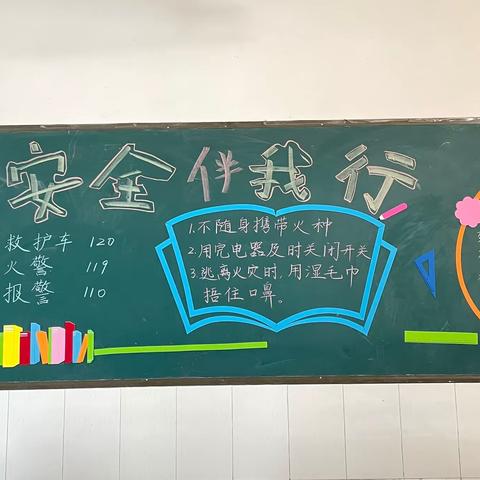 安全伴我行
救护车 120
火警 119
报警 110
1.不随身携带火种
2.用完电器及时关闭开关
3.逃离火灾时,用湿毛巾
捂住口鼻。